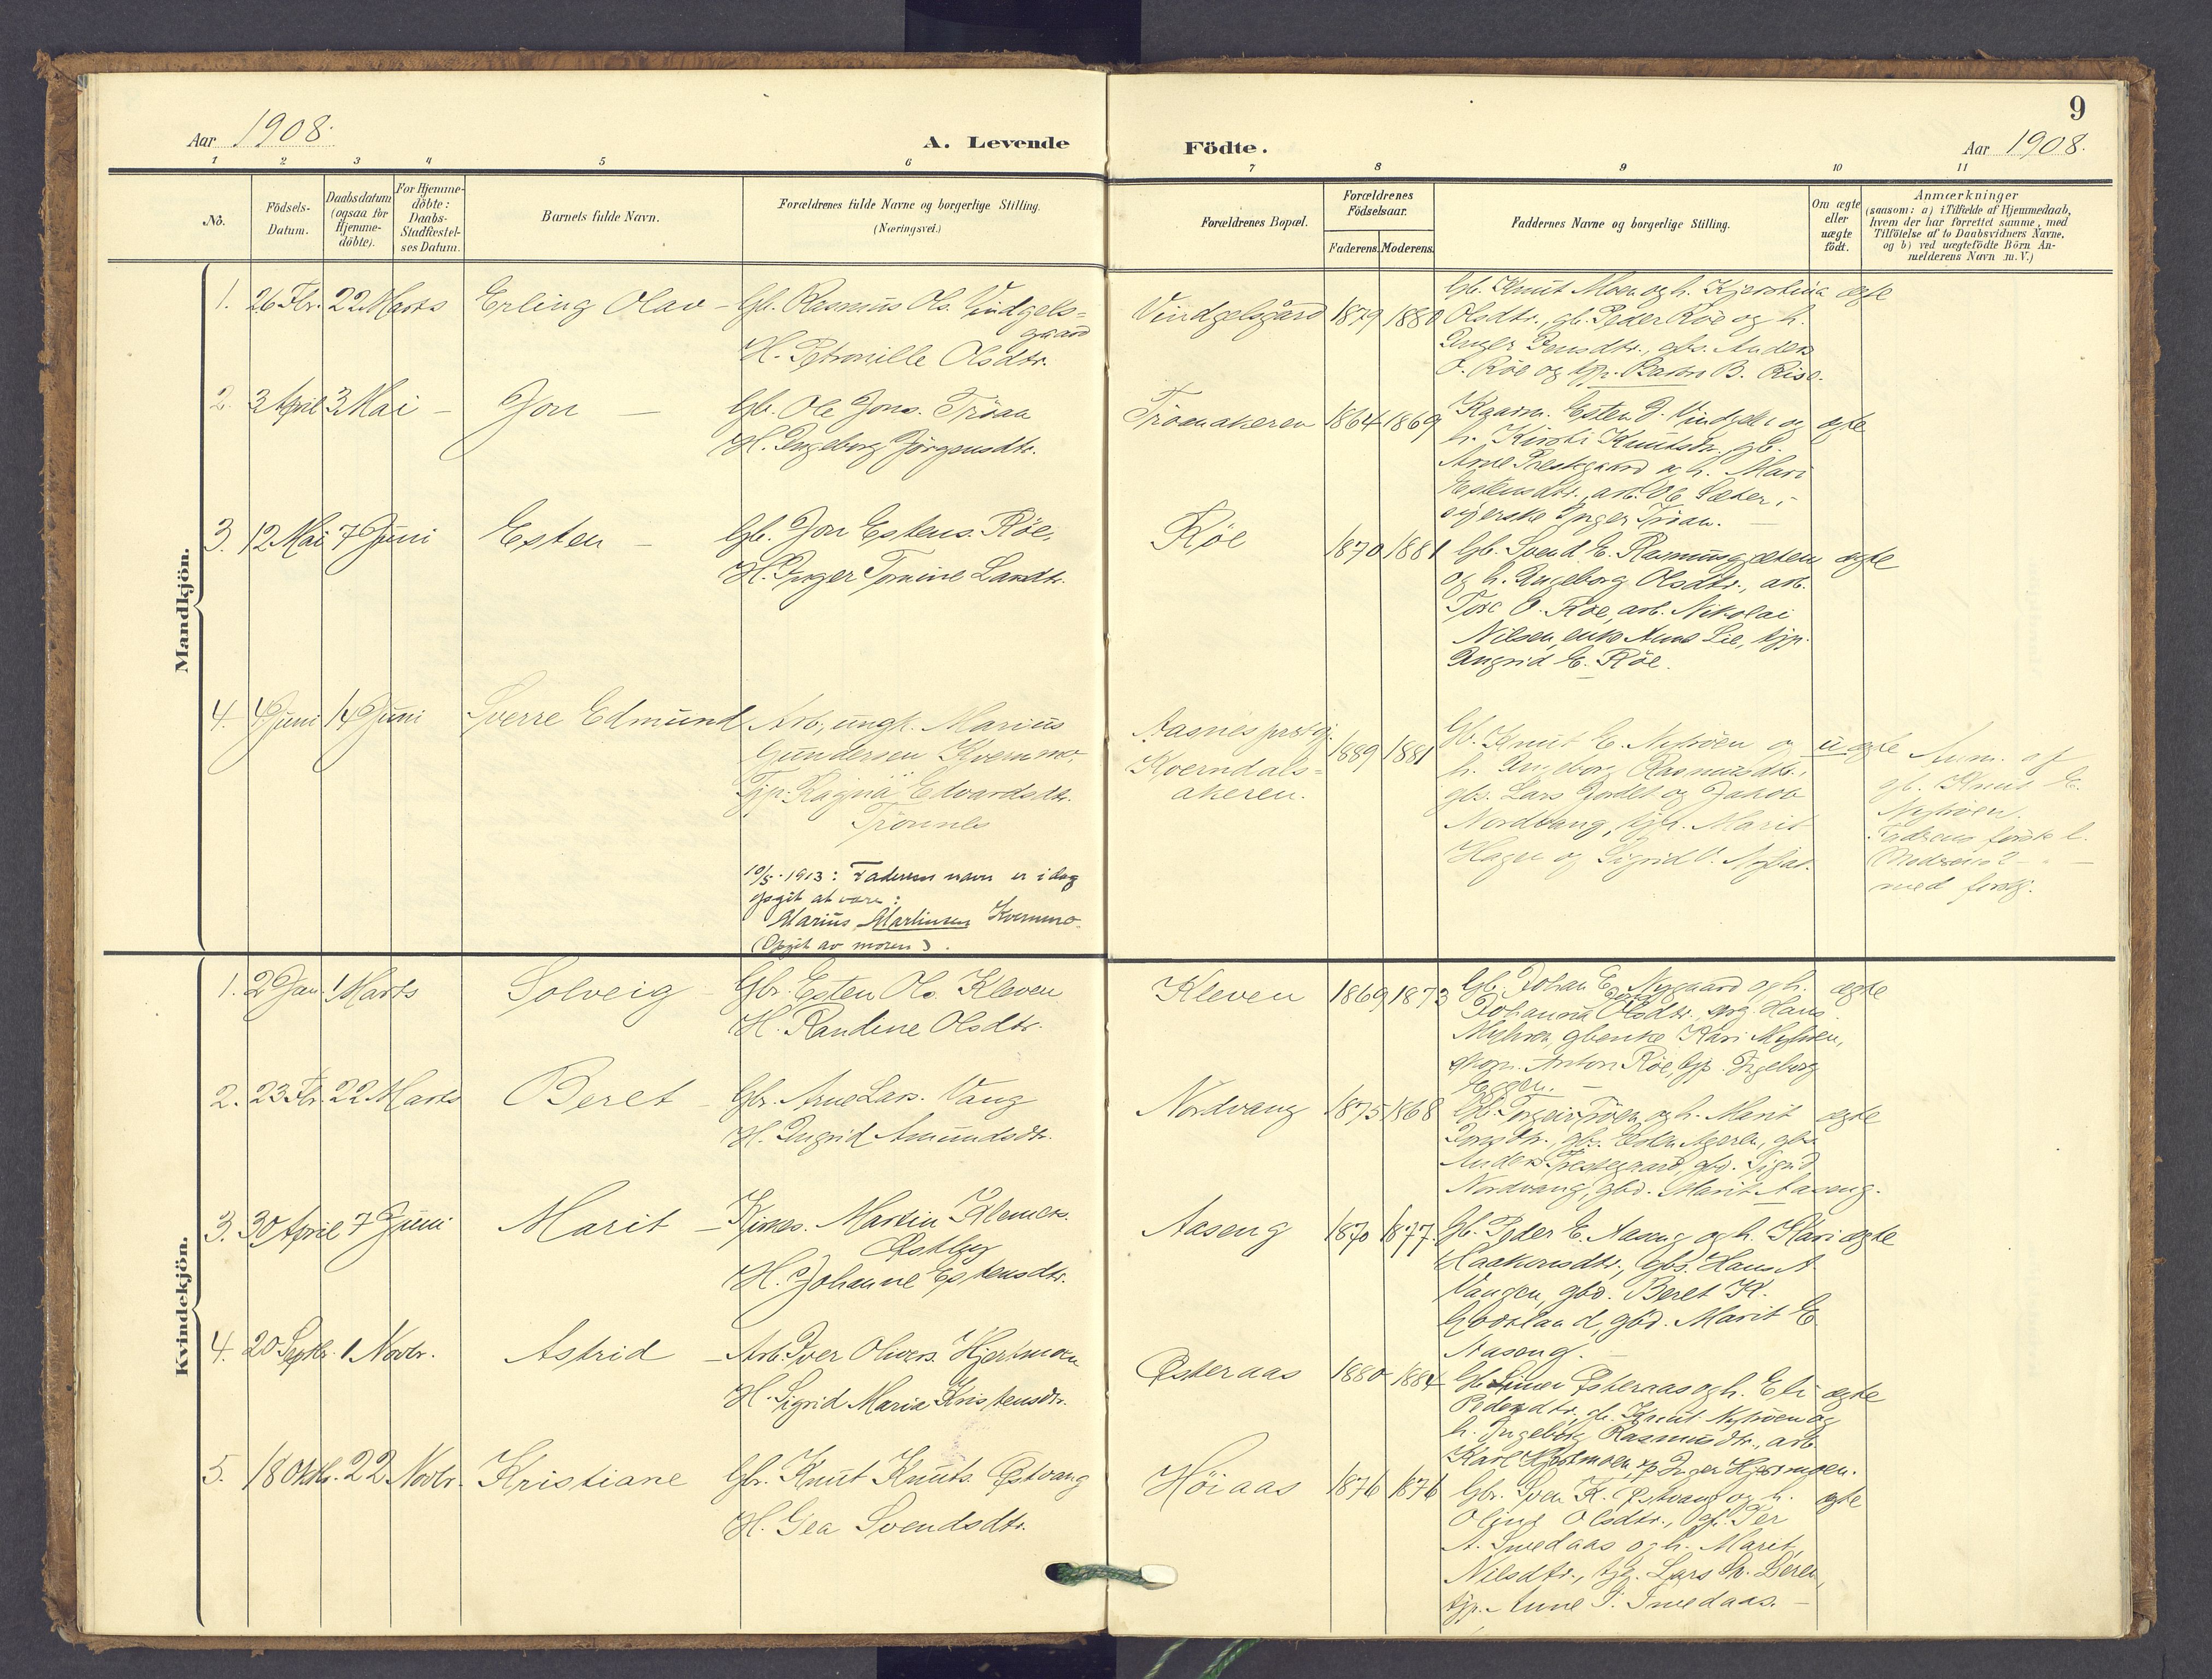 9
Aar 1908.
A. Levende
Födte.
Aar 1908.
1 2 3 4 5 6 7 8 9 10 11
No.
Födsels-
Datum.
Daabsdatum
(ogsaa for
Hjemme-
döbte).
For Hjemme-
döbte:
Daabs-
Stadfæstel-
ses Datum.
Barnets fulde Navn.
Forældrenes fulde Navne og borgerlige Stilling.
(Næringsvei.)
Forældrenes Bopæl.
Forældrenes
Födselsaar.
Faderens.
Moderens.
Faddernes Navne og borgerlige Stilling.
Om ægte
eller
uægte
födt.
Anmærkninger
(saasom: a) i Tilfælde af Hjemmedaab,
hvem der har forrettet samme, med
Tilföielse af to Daabsvidners Navne,
og b) ved uægtefödte Börn An-
melderens Navn m. V.)
Mandkjön.
1. 26 Fbr. 22 Marts Erling Olav –
Gb. Rasmus Ols. Vindgels=
gaard
H. Petronille Olsdtr.
Vindgelsgård 1879 1880
Gb. Knut Moen og h. Kjerstina
Olsdtr., gb. Peder Röe og h.
Inger Jensdtr., gbs. Anders
J. Röe og tjp. Barbro B. Rise.
ægte
2. 3 April 3 Mai – Jon –
Gb. Ole Jons. Tröan
H. Ingeborg Jörgensdtr.
Tröanakeren 1864 1869
Kaarm. Esten J. Vindgelv og
h. Kirsti Knutsdtr., gb.
Arne Prestgaard og h. Mari
Estensdtr., arb. Ole Sæter,
Inger Tröan. –
ægte
3. 12 Mai 7 Juni Esten –
Gb. Jon Estens. Röe,
H. Inger Tomine Larsdtr.
Röe 1870 1881
Gb. Svend E. Rasmusgjelten
og h. Ingeborg Olsdtr., arb.
Tore O. Röe, arb. Nikolai
Nilsen, enke Anne Lie, tjp.
Ingrid E. Röe.
ægte
4. 4 Juni 14 Juni Sverre Edmund
Arb., ungk. Marius
Gundersen Kvernmo,
Tjp. Ragna Edvardsdtr.
Trönnes
10/5-1913: Faderens navn er idag
opgit at være:
Marius Martinsen Kvernmo.
(Opgit av moren).
Aasnes prstgj.
Kverndals=
akeren.
1889 1881
Gb. Knut E. Nytröen og
h. Ingeborg Rasmusdtr.,
gbs. Lars Jordet og Jakob
Nordvang, tjp. Marit
Hagen og Sigrid
uægte
Anm. af
gb. Knut E.
Nytröen.
Faderens förste l.
Moderens 2 – " –
med forskj.
Kvindekjön.
1. 2 Jan. 1 Marts Solveig –
Gbr. Esten Ols. Kleven
H. Randine Olsdtr.
Kleven 1869 1873
Gb. Johan E. Nygaard og h.
Johanna Olsdtr., Hans
Myhren, gbenke Kari Myhren,
Anton Röe, tjp. Ingeborg
Eggen. –
ægte
2. 23 Fbr. 22 Marts Beret –
Gbr. Arne Lars. Vang
H. Ingrid Amundsdtr.
Nordvang 1875 1868
Gb. Torgeir Tröen og h. Marit
Jonsdtr., gbs. Esten Ageren, gbs.
Anders Prestegaard, gbd. Sigrid
Nordvang, gbd. Marit Aaseng.
ægte
3. 30 April 7 Juni Marit –
Kirkes. Martin Klemets.
Østby
H. Johanne Estensdtr.
Aaseng 1870 1877
Gb. Peder E. Aaseng og h. Kari
Haakonsdtr., gbs. Hans A.
Vangen, gbd. Beret K.
gbd. Marit E.
Aaseng. –
ægte
4. 20 Septbr. 1 Novbr. Astrid –
Arb. Iver Olivers. Hjertmoen
H. Sigrid Maria Kristensdtr.
Østeraas 1880 1884
Gb. Simen Østeraas og h. Eli
Pedersdtr., gb. Knut Nytröen og
h. Ingeborg Rasmusdtr., arb.
Karl Hjertmoen, tjp Inger Hjertmoen.
ægte
5. 18 Oktbr. 22 Novbr. Kristiane
Gbr. Knut Knuts. Østvang
H. Gea Svendsdtr.
Höiaas 1876 1876
Gbr. Sven K. Østvang og h.
Oline Olsdtr., gb. Per
A. Smedaas og h. Marit
Nilsdtr., tjg. Lars
tjp. Anne P. Smedaas. –
ægte